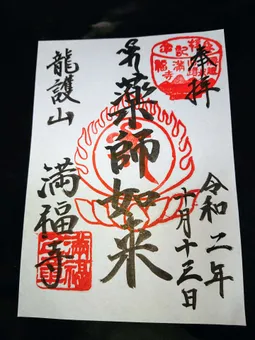 奉拝
令和二年
十月十三日
薬師如来
龍護山
満福寺